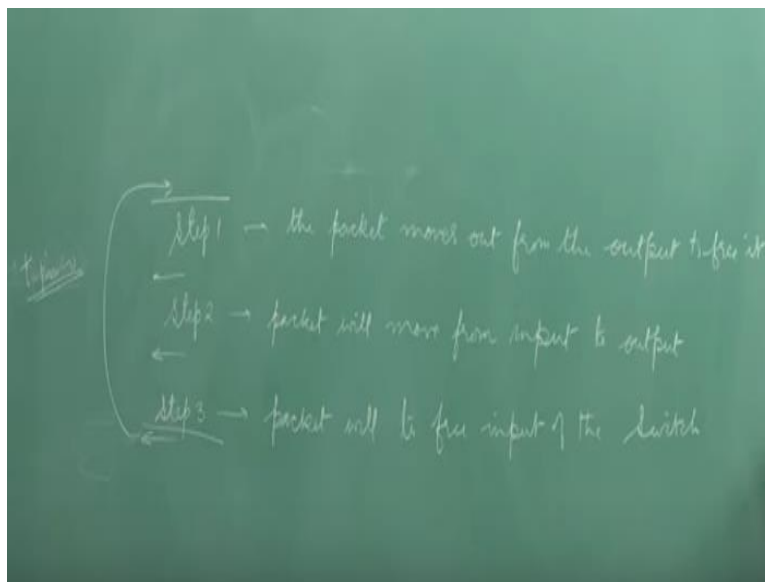 Step 1 → the packet moves out from the output to free it
Step 2 → packet will move from input to output
Step 3 → packet will to free input of the Switch